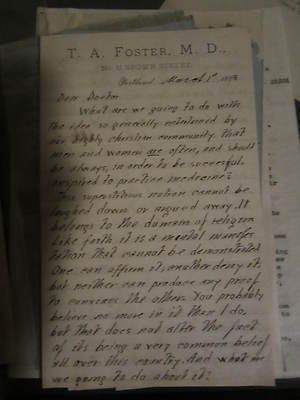 T. A. FOSTER, M. D.,
Portland, March 1st
Dear Doctor
What are we going to do with
the idea so generally entertained by
our highly christian community that
men and women are often, and should
be always, in order to be successful,
inspired to practice medicine?
This superstitious notion cannot be
laughed down or argued away. It
belongs to the domain of religion
Like faith it is a mental manifes
tation that cannot be demonstrated.
One can affirm it, another deny it,
but neither can produce any proof
to convince the other. You probably
believe no more in it than I do,
but that does not alter the fact
of its being a very common belief
all over this country. And what are
we going to do about it?